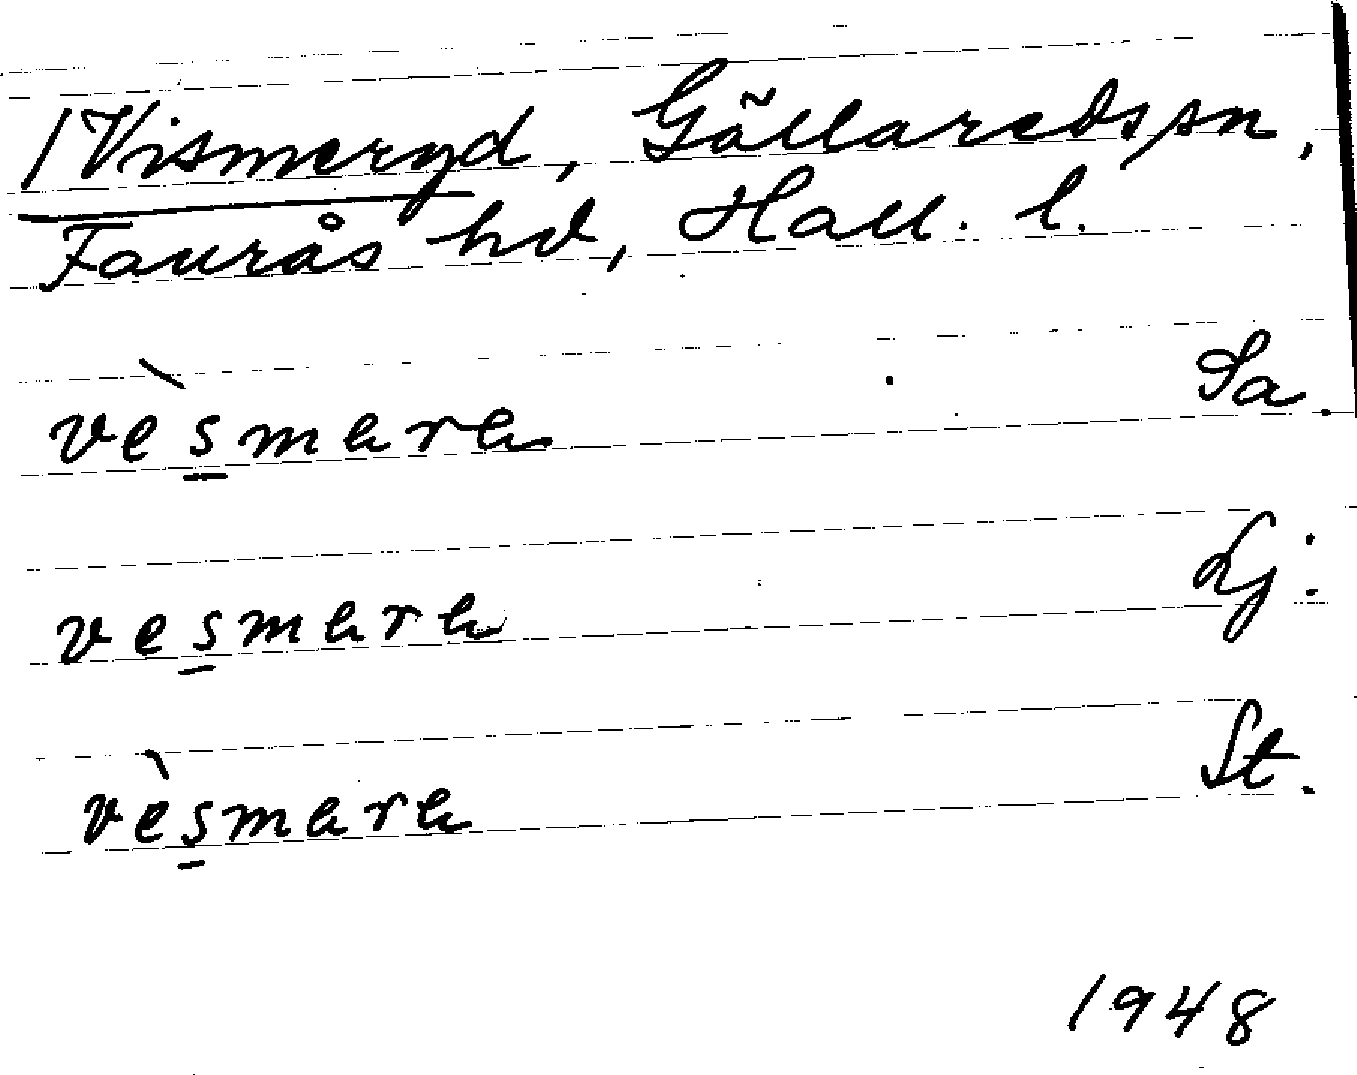 /Vismeryd, Gällaredssn,
Faurås hd, Hall. l.
vèsmara Sa.
vesmara Lj.
vèsmara St.
1948